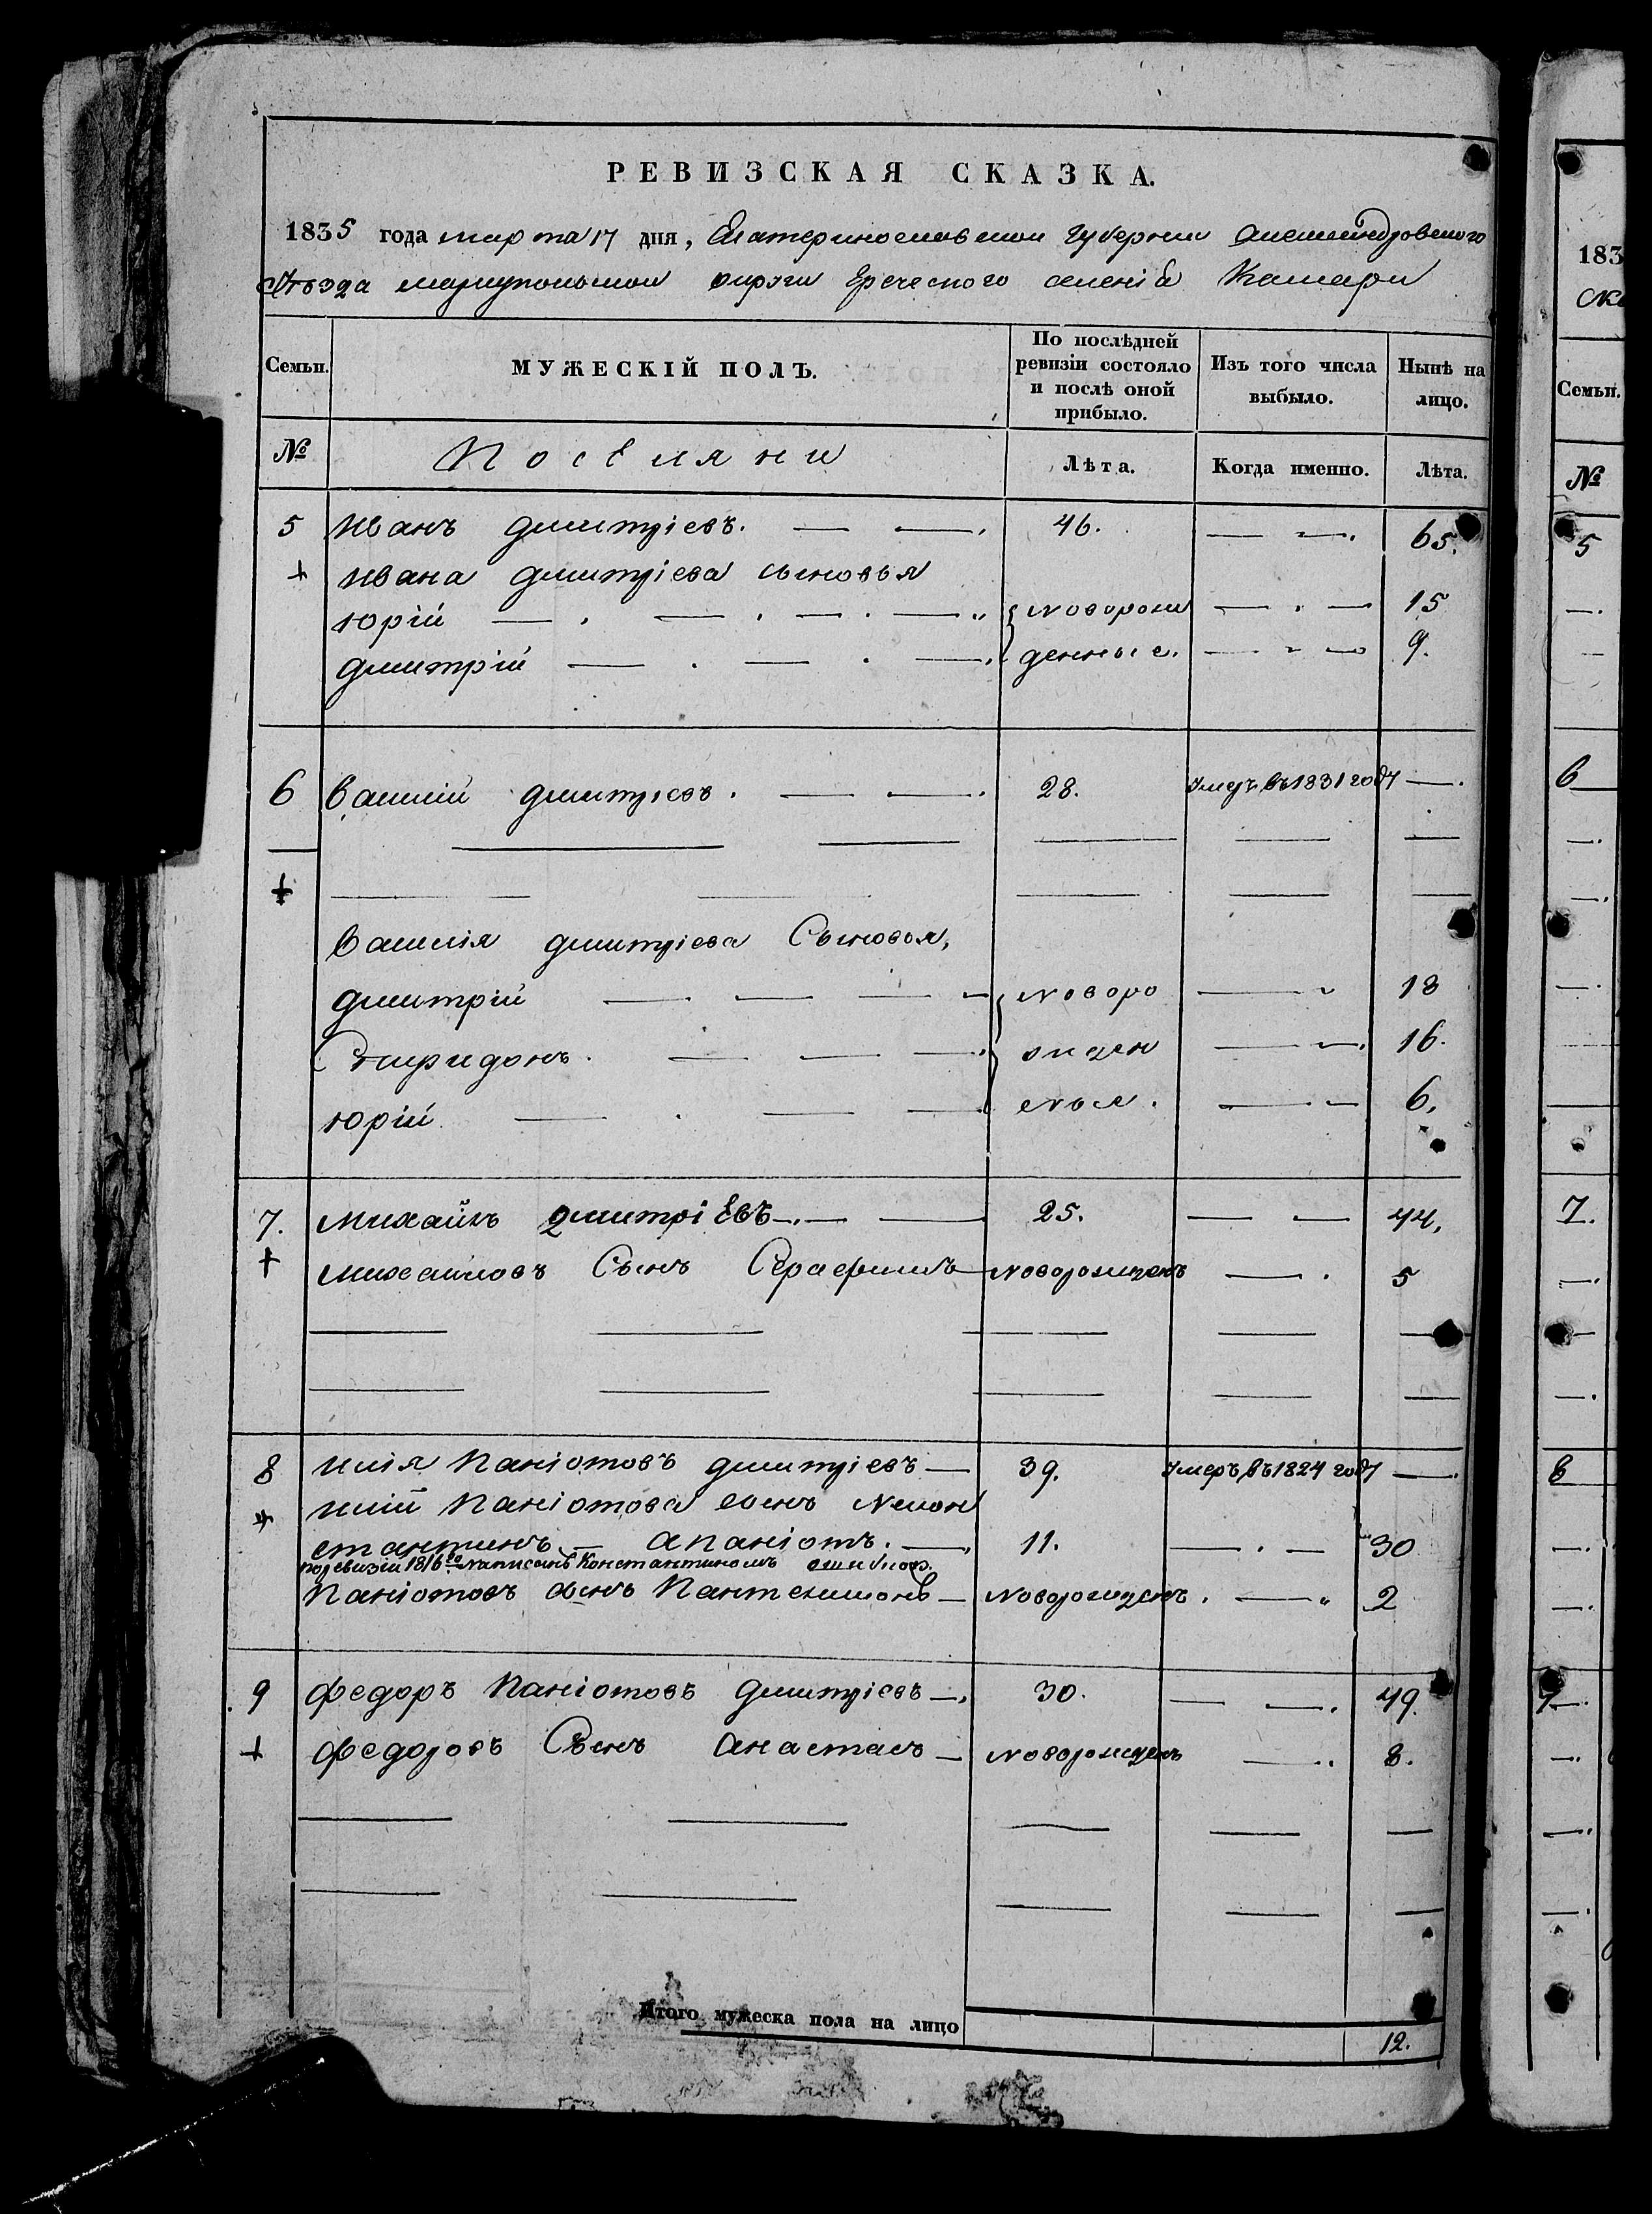 РЕВИЗСКАЯ СКАЗКА.
1835 года марта 17 дня, Екатеринославской губернии Александровского
уѣзда мариупольской округи греческого селенія Камари
Семьи. МУЖЕСКІЙ ПОЛЪ. По послѣдней ревизіи состояло и послѣ оной прибыло. Изъ того числа выбыло. Нынѣ на лицо.
№ Поселяни Лѣта. Когда именно. Лѣта.
5 иванъ дмитріевъ. 46. 65.
ивана дмитріева сыновья
юрій новорож 15
дмитрій денные. 9.
6 василій дмитріевъ. 28. умеръ въ 1831 году
василія дмитріева Сыновья,
дмитрій новоро 18
Спиридонъ. жден 16.
юрій ныя. 6.
7. михайлъ дмитріевъ 25. 44.
михайловъ Сынъ Серафимъ новорожденъ 5
8 илія Паніотовъ дмитріевъ 39. умеръ въ 1824 году
иліи Паніотова сынъ не кон
стантинъ. а паніотъ. 11. 30
по ревизіи 1816го написанъ Константиномъ ошибкою
Паніотовъ сынъ Пантелимонъ новорожденъ. 2
9 федоръ Паніотовъ дмитріевъ 30. 49.
федоровъ Сынъ анастасъ новорожденъ 8.
Итого мужеска пола на лицо 12.
183
Семьи.
№
5
6
7.
8
9